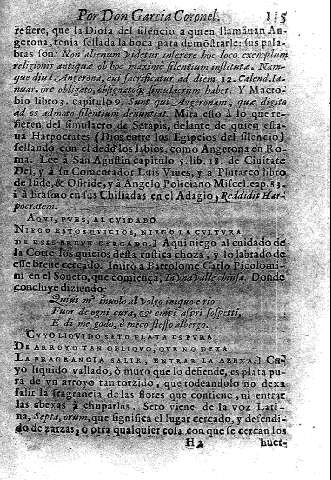 Por Don Garcia Coronel. 115
refiere, que la Diosa del silencio a quien llamauan An-
gerona, tenia sellada la boca para demostrarle: sus pala-
bras son. Non alienum videtur inserere hoc loco exemplum
religionis antiquæ ob hoc maxime silentium institutæ. Nam-
que diua Angerona, cui sacrificatur ad diem 12. Calend. Ia-
nuar. ore obligato, obsignatoq; simulacrum habet. Y Macro-
bio libro 3. capitulo 9. Sunt qui Angeronam, quæ digito
ad os admoto silentium denuntiat. Mira esto à lo que re-
fieren del simulacro de Serapis, delante de quien esta-
ua Harpocrates (Dios entre los Egipcios del silencio)
sellando con el dedo los labios, como Angerona en Ro-
ma. Lee à San Agustin capitulo 5. lib. 18. de Ciuitate
Dei, y à su Comentador Luis Viues, y a Plutarco libro
de Iside, & Osiride, y a Angelo Policiano Miscel. cap. 83.
i à Erasmo en sus Chiliadas en el Adagio, Reddidit Har-
pocratem.
AQVI, PVES, AL CVIDADO
NIEGO ESTOS QVICIOS, NIEGO LA CVLTVRA
DE ESTE BREVE CERCADO. ] Aqui niego al cuidado de
la Corte los quicios desta rustica choza, y lo labrado de
este breue cercado. Imitò à Bartolome Carlo Picolomi-
ni en el Soneto, que comiença, Donde
concluye diziendo:
Quiui m' inuolo al volgo iniquo e rio
Fuor de ogni cura, &c empi aspri sospetti,
E di me godo, è meco stesso albergo.
CVYO LIQVIDO SETO PLATA ES PVRA
DE ARROYO TAN OBLIQVO, QVE NO DEXA
LA FRAGRANCIA SALIR, ENTRAR LA ABEXA. ] Cu-
yo liquido vallado, ò muro que lo defiende, es plata pu-
ra de vn arroyo tan torzido, que rodeandolo no dexa
salir la fragrancia de las flores que contiene, ni entrar
las abexas à chuparlas. Seto viene de la voz Lati-
na, Septa, orum, que significa el lugar cercado, y defendi-
do de zarzas, ò otra qualquier cosa con que se cercan los
H 2 huer-